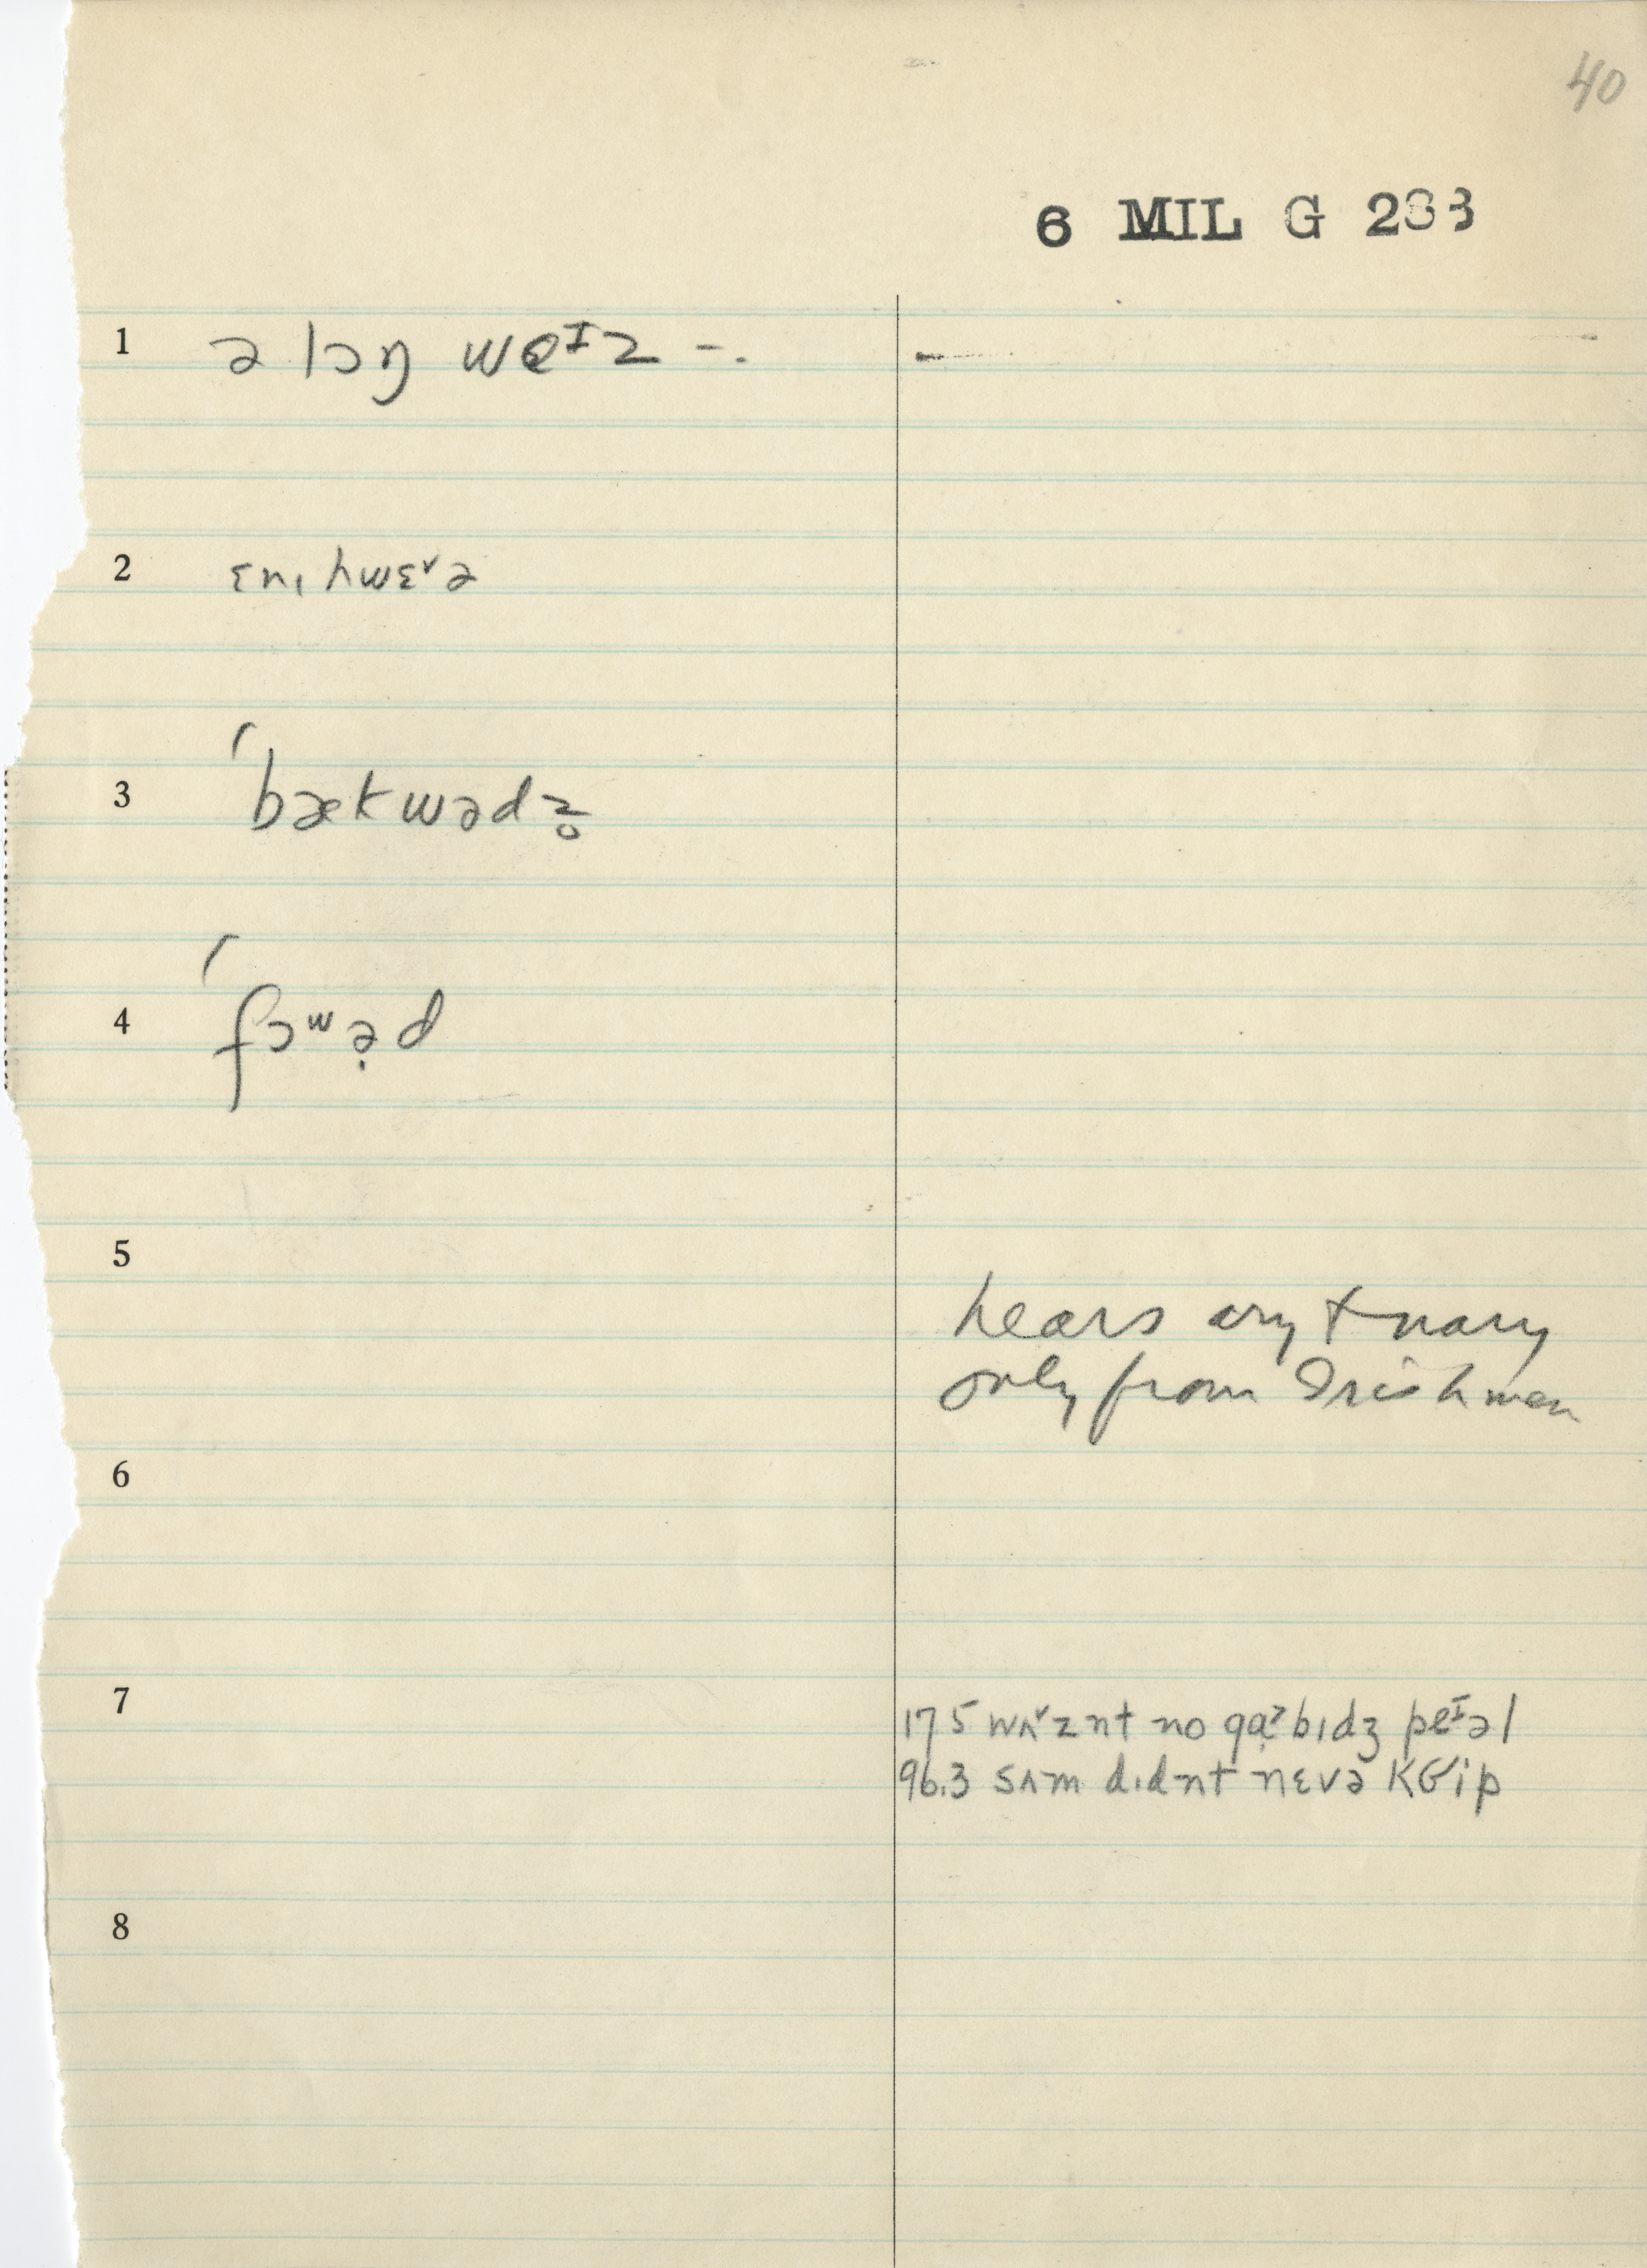 40
6 MIL G 233
1 ə lɔŋ weᶦz -.
2 ɛnɪ hwɛ˅ə
3 ˊbækwədz̥
4 ˊfɔʷə̣d
5
hears ary + nary
only from Irishmen
6
7
175 wʌ˅znt no gạ˃bɪdʒ peᶦəl
96.3 sʌm dɪdnt nɛvə kɞip
8